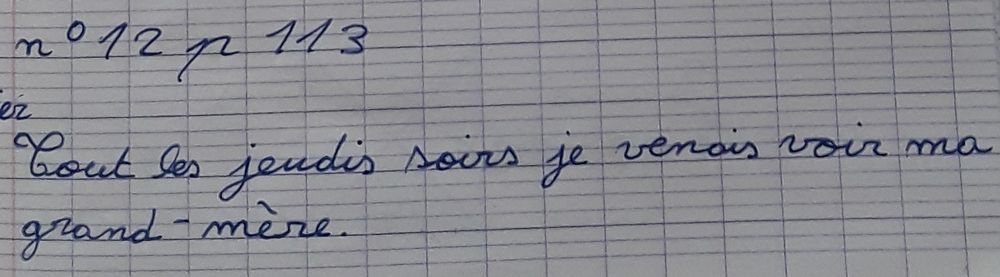 n° 12 p 113
er
Tout les jeudis soirs je venais voir ma
grand-mère.